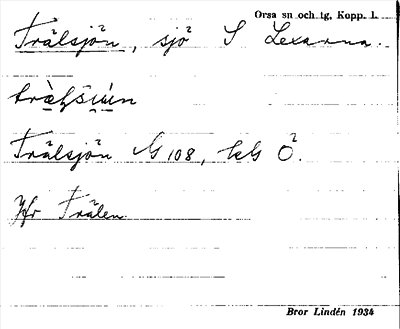 Orsa sn och tg, Kopp. l.
Trälsjön, sjö S Lexarna.
Trälsjön G 108, kG Ö.
Jfr Trälen.
Bror Lindén 1934